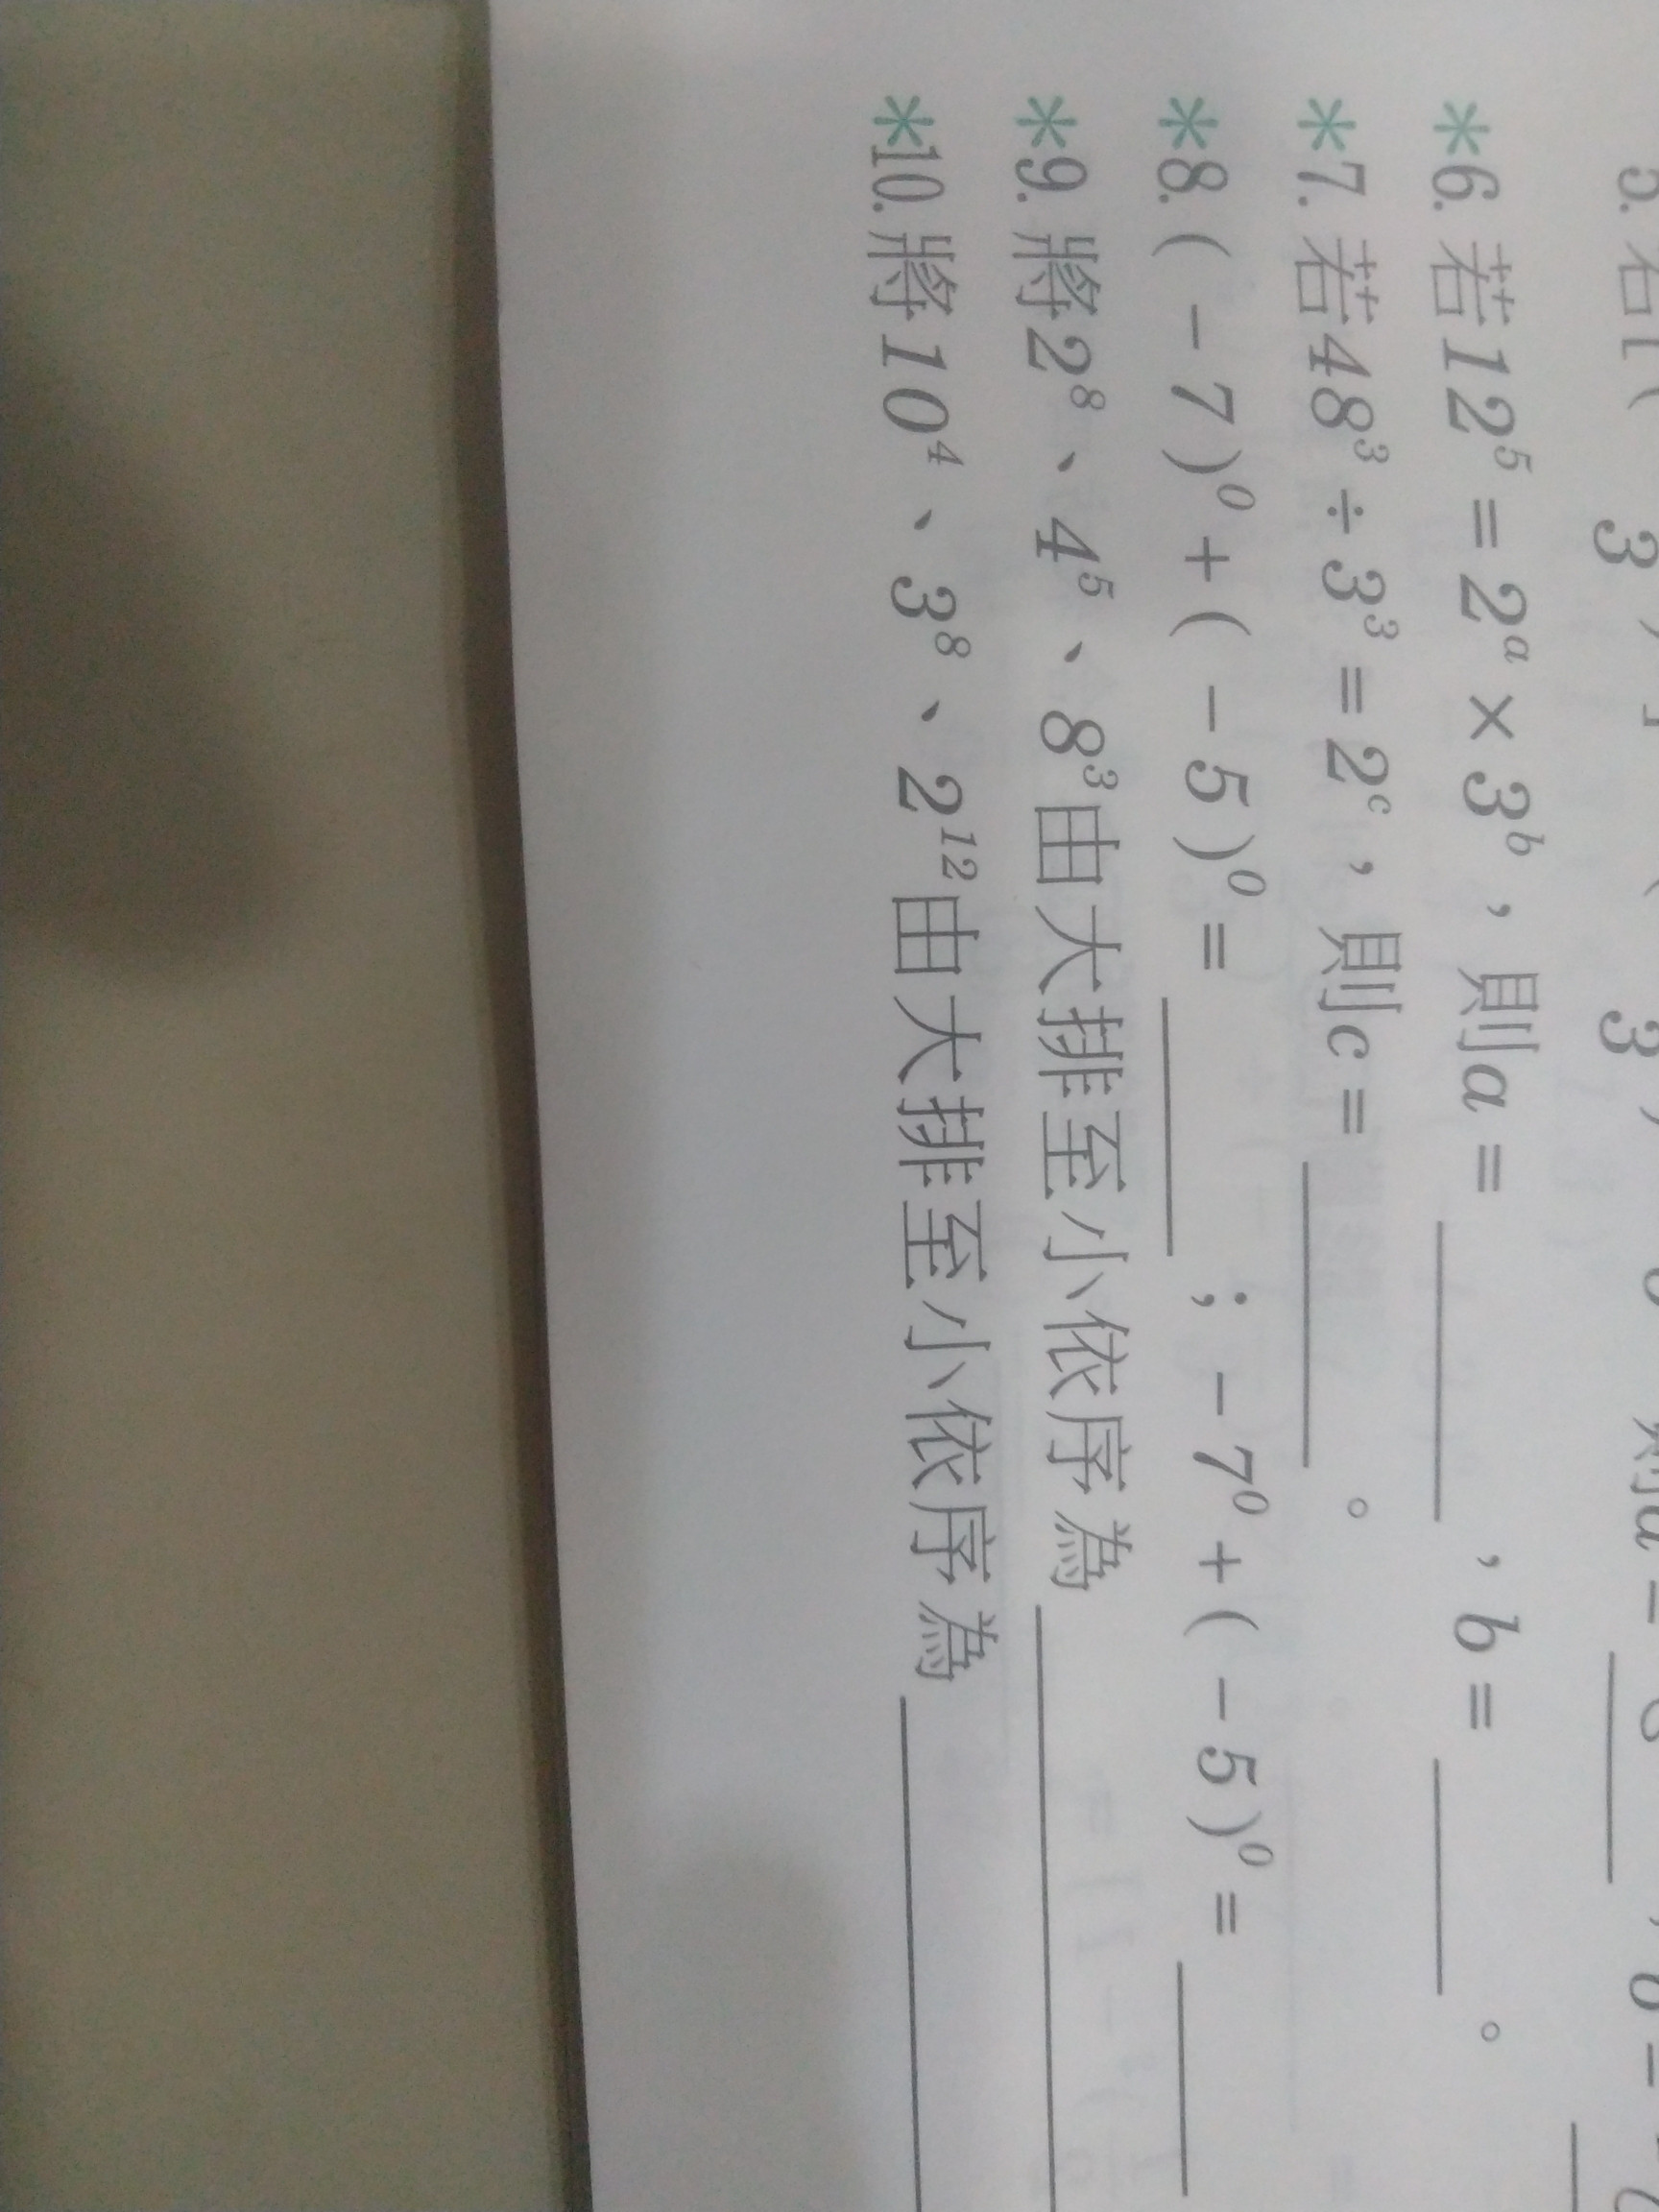 *6. 若12⁵=2ᵃ×3ᵇ,則a=______,b=______。
*7. 若48³÷3³=2ᶜ,則c=______。
*8.(-7)⁰+(-5)⁰=______;-7⁰+(-5)⁰=______
*9. 將2⁸、4⁵、8³由大排至小依序為______
*10. 將10⁴、3⁸、2¹²由大排至小依序為______